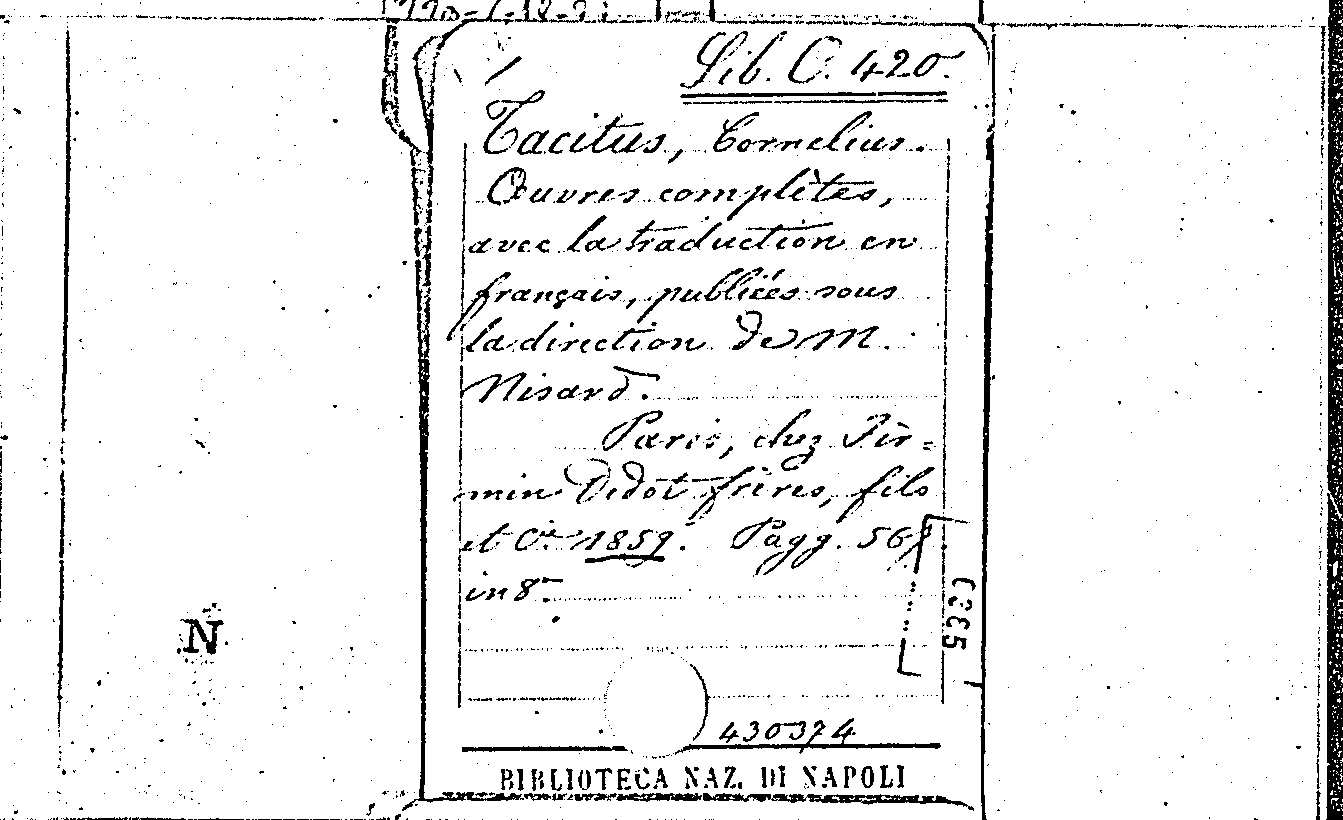 Lib. C. 420.
Tacitus, Cornelius.
Œuvres complètes,
avec la traduction en
français, publiées sous
la direction de M.
Nisard.
Paris, chez Fir=
min Didot frères, fils
et Cie 1859. Pagg.
in 8º.
N
430374
BIBLIOTECA NAZ. DI NAPOLI